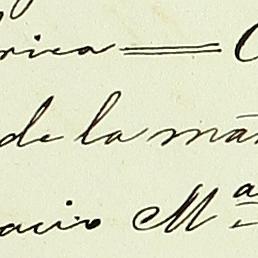 rica =
de la mañ
nacio Mª